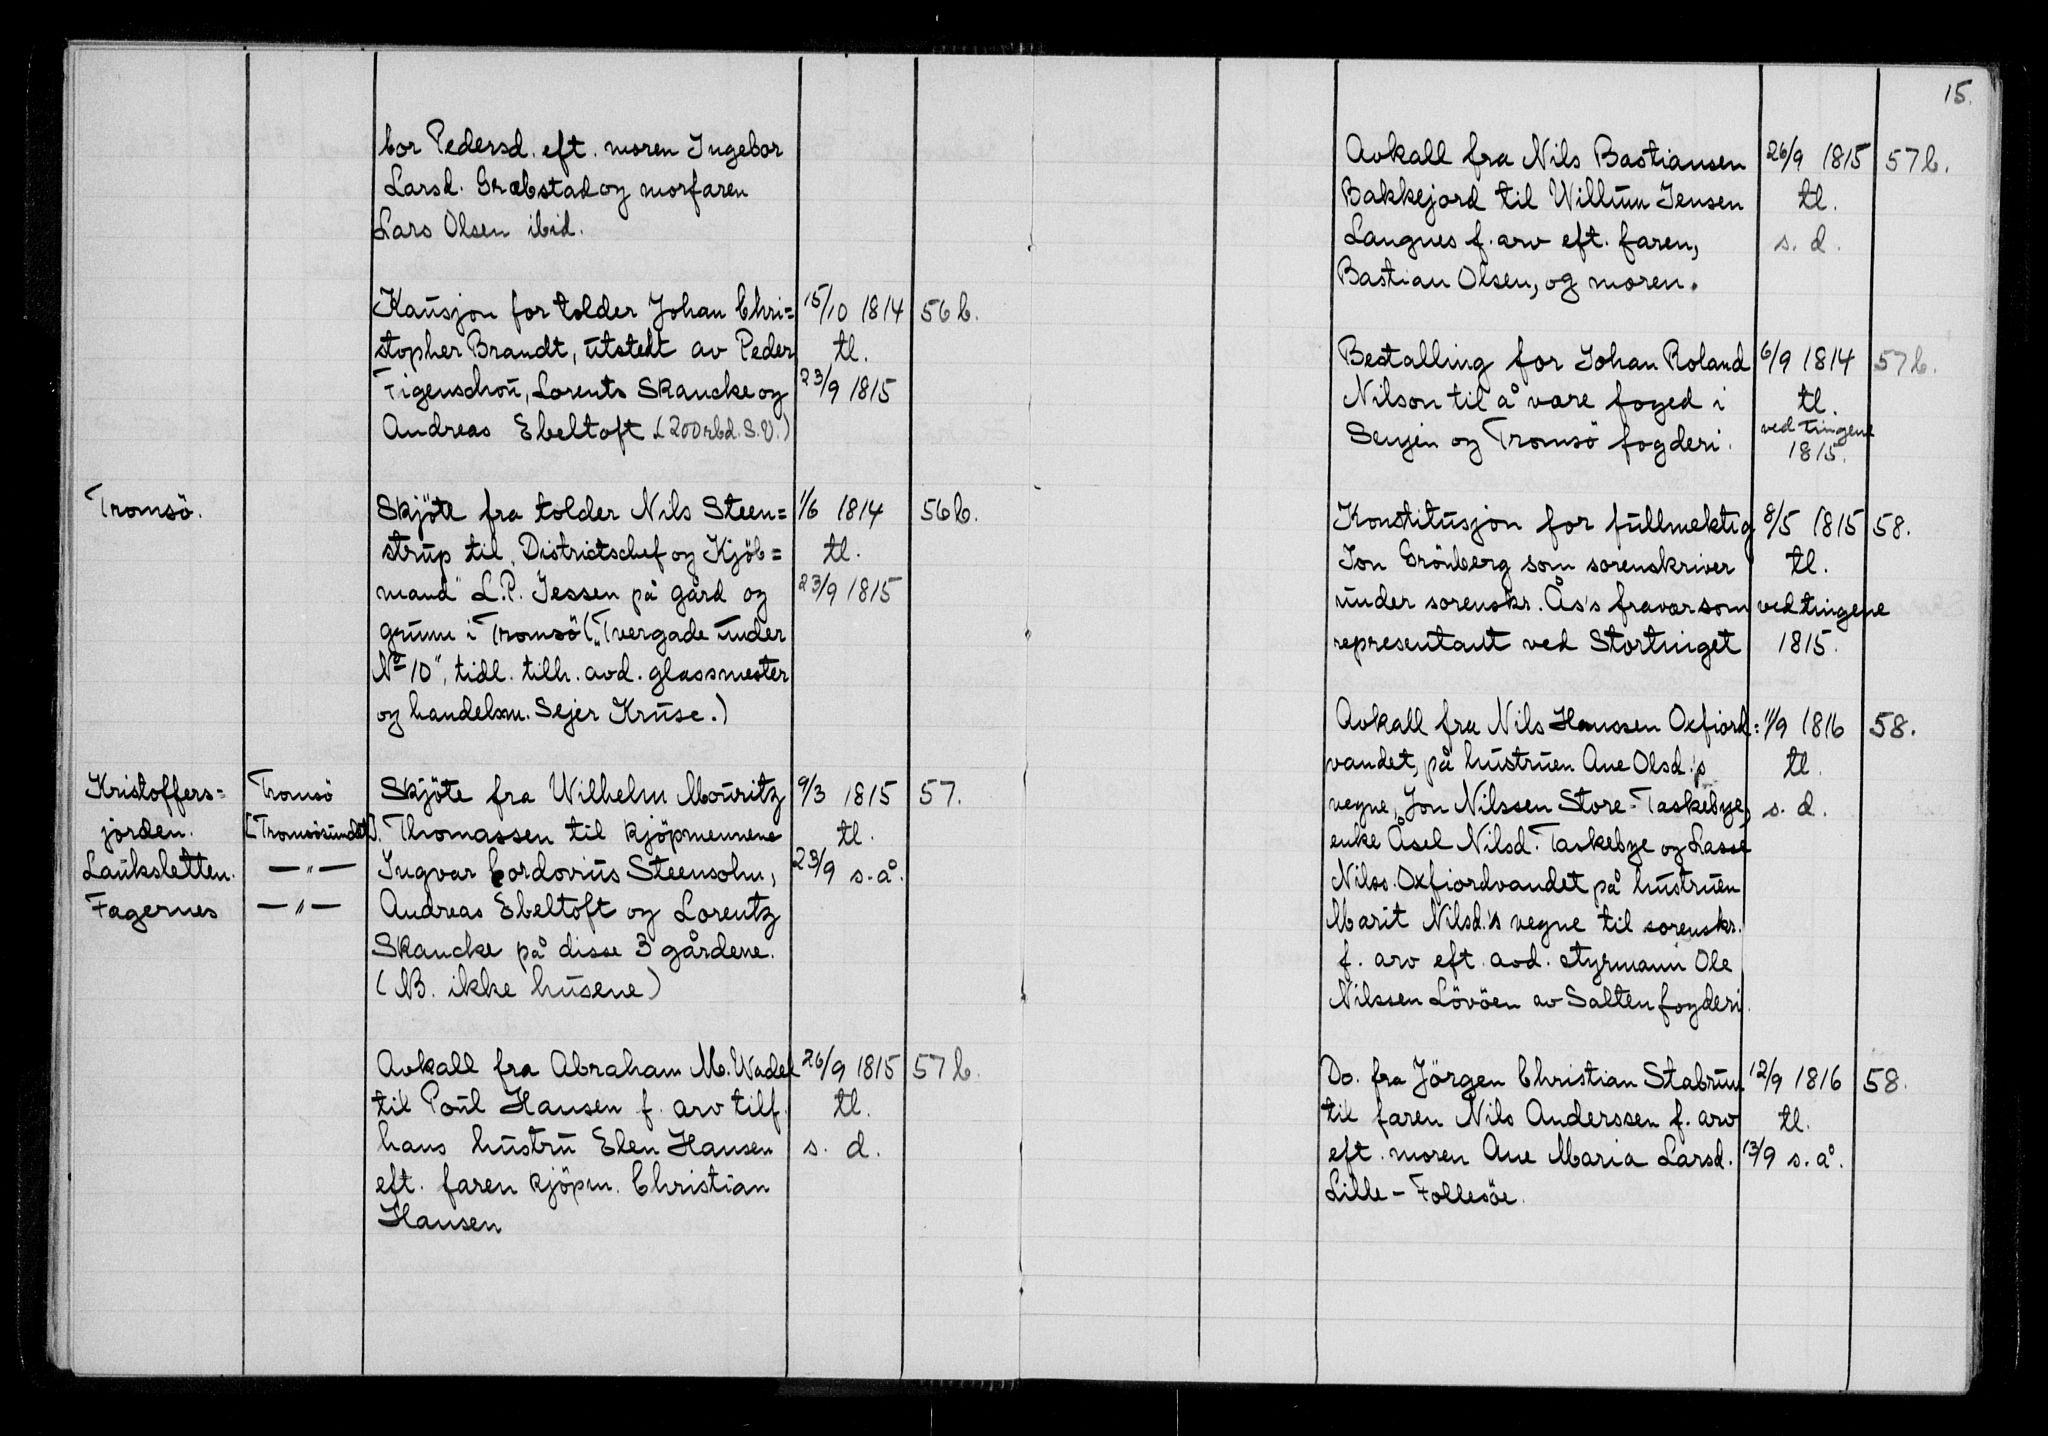 bor Pedersd. eft. moren Ingebor
Larsd. Græbstad og morfaren
Lars Olsen ibid.
Kausjon for tolder Johan Chri= 15/10 1814 56 b.
stopher Brandt, utstedt av Peder tl.
Figenschou, Lorents Skancke og 23/9 1815
Andreas Ebeltoft (200 rbd. S.V.)
Tromsö. Skjöte fra tolder Nils Steen= 1/6 1814 56b.
strup til „Districtschef og Kjöb= tl.
mand" L.P. Jessen på gård og 23/9 1815
grunn i Tromsö („Tvergade under
No 10", tidl. tilh. avd. glassmester
og handelsm. Sejer Kruse.)
Kristoffers= Tromsö Skjöte fra Wilhelm Mouritz 9/3 1815 57.
jorden. [Tromsösundet]. Thomassen til kjöpmennene tl.
Lauksletten. —"— Ingvar Cordovius Steensohn, 23/9 s. å.
Fagernes —"— Andreas Ebeltoft og Lorentz
Skancke på disse 3 gårdene.
(NB. ikke husene)
Avkall fra Abraham M. Wadel 26/9 1815 57 b.
til Poul Hansen f. arv tilf. tl.
hans hustru Elen Hansen s. d.
eft. faren kjöpm. Christian
Hansen
15.
Avkall fra Nils Bastiansen 26/9 1815 57 b.
Bakkejord til Willum Jensen tl.
Langnes f. arv eft. faren, s. d.
Bastian Olsen, og moren.
Bestalling for Johan Roland 6/9 1814 57 b.
Nilson til å være foged i tl.
Senjen og Tromsö fogderi. ved tingene
1815.
Konstitusjon for fullmektig 8/5 1815 58.
Jon Grönberg som sorenskriver tl.
under sorenskr. Ås's fravær som ved tingene
representant ved Stortinget 1815.
Avkall fra Nils Hanssen Oxfiord= 11/9 1816 58.
vandet, på hustruen Ane Olsd.'s tl.
vegne, Jon Nilssen Store-Taskebye, s. d.
enke Åsel Nilsd. Taskebye og Lasse
Nilss. Oxfiordvandet på hustruen
Marit Nilsd.'s vegne til sorenskr.
f. arv eft. avd. styrmann Ole
Nilssen Lövöen av Salten fogderi.
Do. fra Jörgen Christian Stabrun 12/9 1816 58.
til faren Nils Anderssen f. arv tl.
eft. moren Ane Maria Larsd. 13/9 s. å.
Lille-Follesöe.